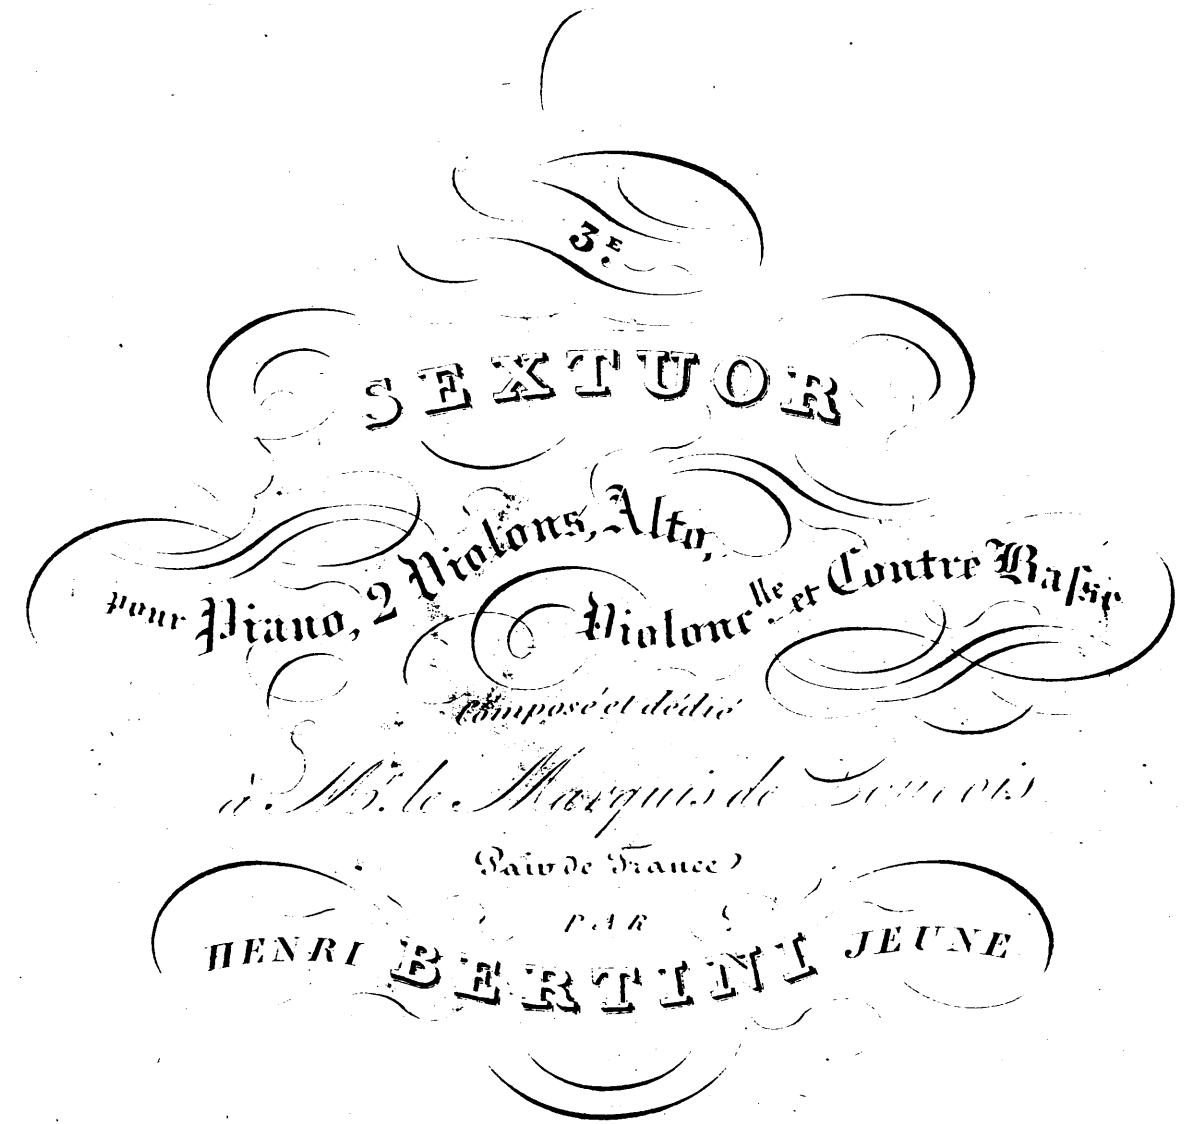 3.E
SEXTUOR
pour Piano, 2 Violons, Alto,
Violonc.lle et Contre Basse
Composé et dédié
à Mr. le Marquis de Louvois
Pair de France
PAR
HENRI BERTINI JEUNE